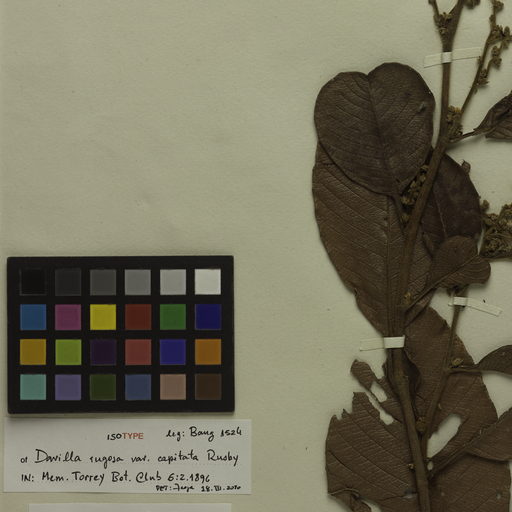 ISOTYPE leg: Bang 1524
of Davilla rugosa var. capitata Rusby
IN: Mem. Torrey Bot. Club 6:2.1896
DET: 18.III.2010